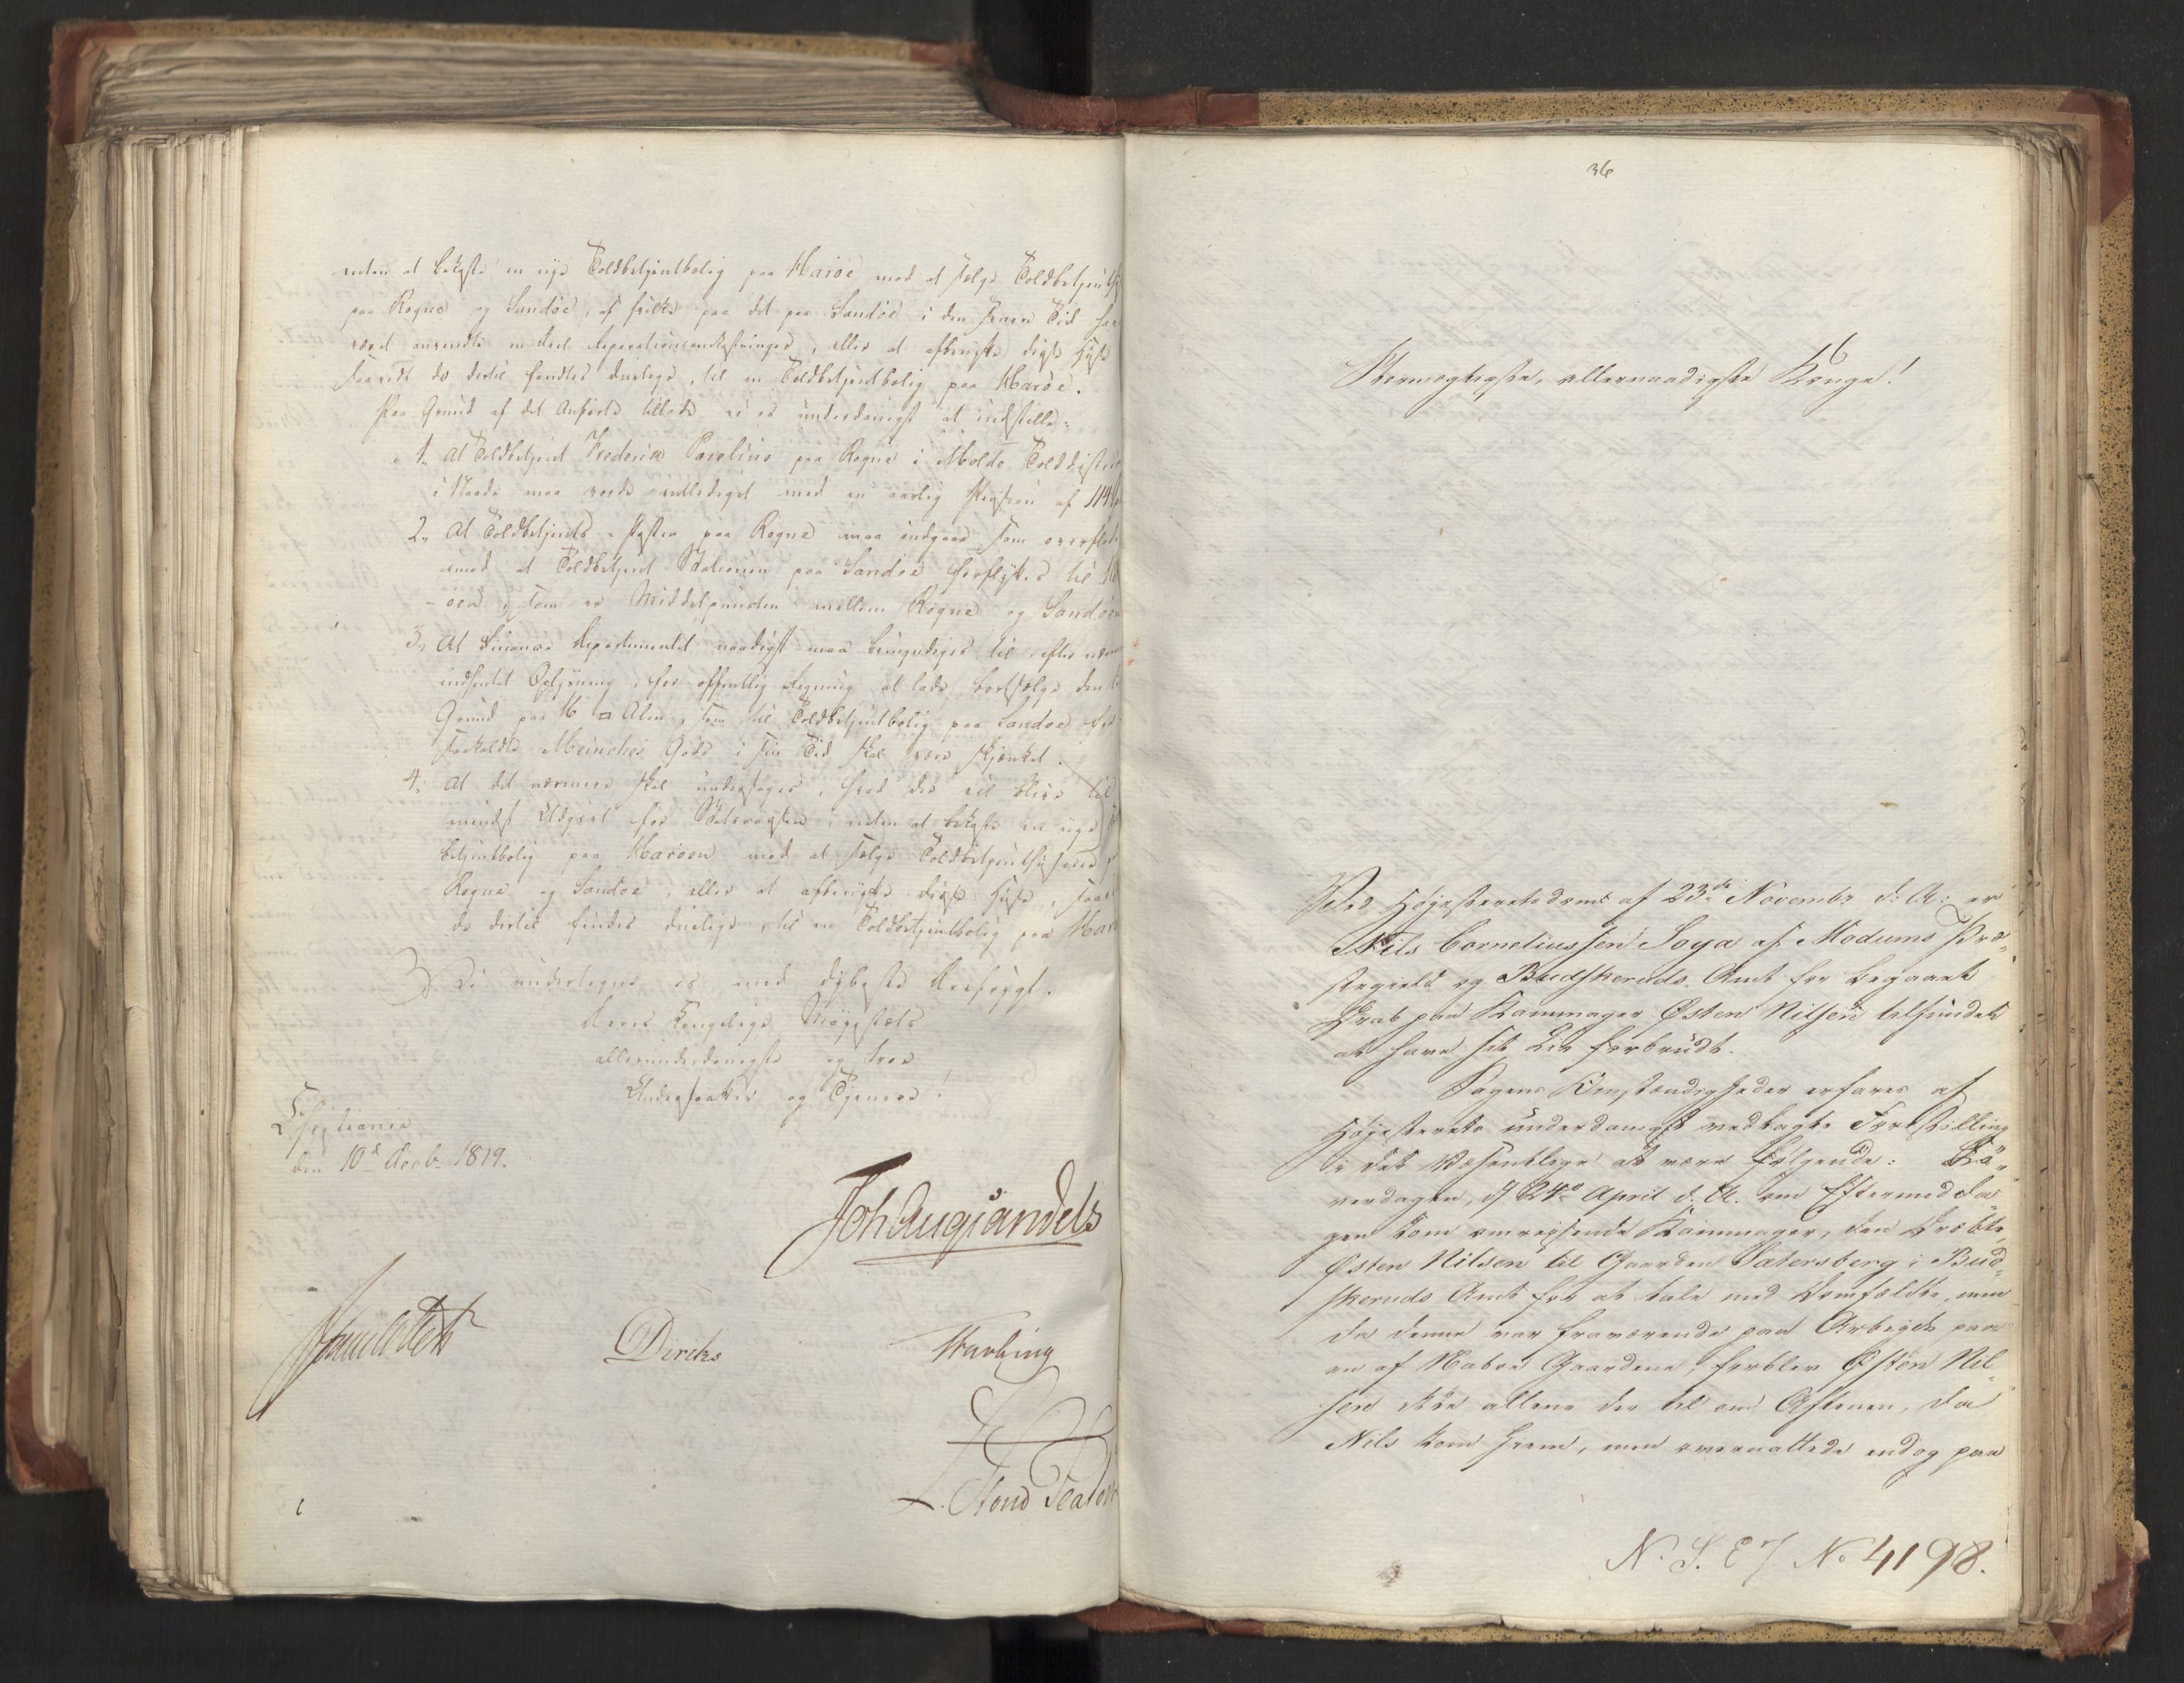 uden at bekoste en nye Toldbetjentbolig paa Harøe med at sælge Toldbetjent
paa Rogne og Sandøe, af hvilke paa det paa Sandøe i den senere Tid har
været anvendte endeel Reparationsomkostninger, eller at afbenytte disse Huse
saavidt de dertil fandtes duelige, til en Toldbetjentbolig paa Harøe.
Paa Grund af det Anførte tillade vi os underdanigst at indstille:
1. At Toldbetjent Frederic Parelius paa Rogne i Molde Tolddistric
i Naade maa vorde entlediget med en aarlig Pension af 114
2. At Toldbetjents-Posten paa Rogne maa indgaae som overflødi
imod at Toldbetjent Stationen paa Sandøe forflyttes til Ha
-øen, som er Middelpuncten mellem Rogne og Sandøen
3. At Finance Departementet naadigst maa bemyndiges til efter nærm
indhentet Oplysning, for offentlig Regning at lade bortsælge den
Grund paa 16 □ Alen, som til Toldbetjentbolig paa Sandøe
saakaldte Meinches Gods i sin Tid skal være skjænket.
4. At det nærmere skal undersøges, hvad der vil blive til
mindst Udgivt for Statscassen, enten at bekoste en nye
betjentbolig paa Harøen med at sælge Toldbetjenthusene
Rogne og Sandøe, eller at afbenytte disse Huse, saa
de dertil findes duelige, til en Toldbetjentbolig paa Har
Vi undertegne os med dybeste Ærefrygt.
Deres Kongelige Majestæts
allerunderdanigste og troe
Undersaatter og Tjenere!
Christiania
den 10d Decbr 1819.
Joh Aug Sandels
Diriks
L. Stoud Platou
36
Stormægtigste, allernaadigste Konge!
Ved Høiesteretsdom af 23de Novembr d: A: er
Nils Corneliussen Soya af Modums Præ-
stegield og Budskeruds Amt for begaaet
Drab paa Kammager Østen Nilsen tilfundet
at have sit Liv forbrudt.
Sagens Omstændigheder erfares af
Høiesterets underdanigst vedlagte Forestilling
i det Væsentlige at være følgende: Lø-
verdagen, d 24de April d. A. om Eftermidda
gen kom omreisende Kammager, den Dræbte
Østen Nilsen til Gaarden Satersberg i Bud-
skeruds Amt for at tale med Domfældte, men
da denne var fraværende paa Arbeide paa
en af Naboe Gaardene, forblev Østen Nil-
sen ikke allene der til om Aftenen, da
Nils kom hjem, men overnattede endog paa
N. S. E 7 No 4198.